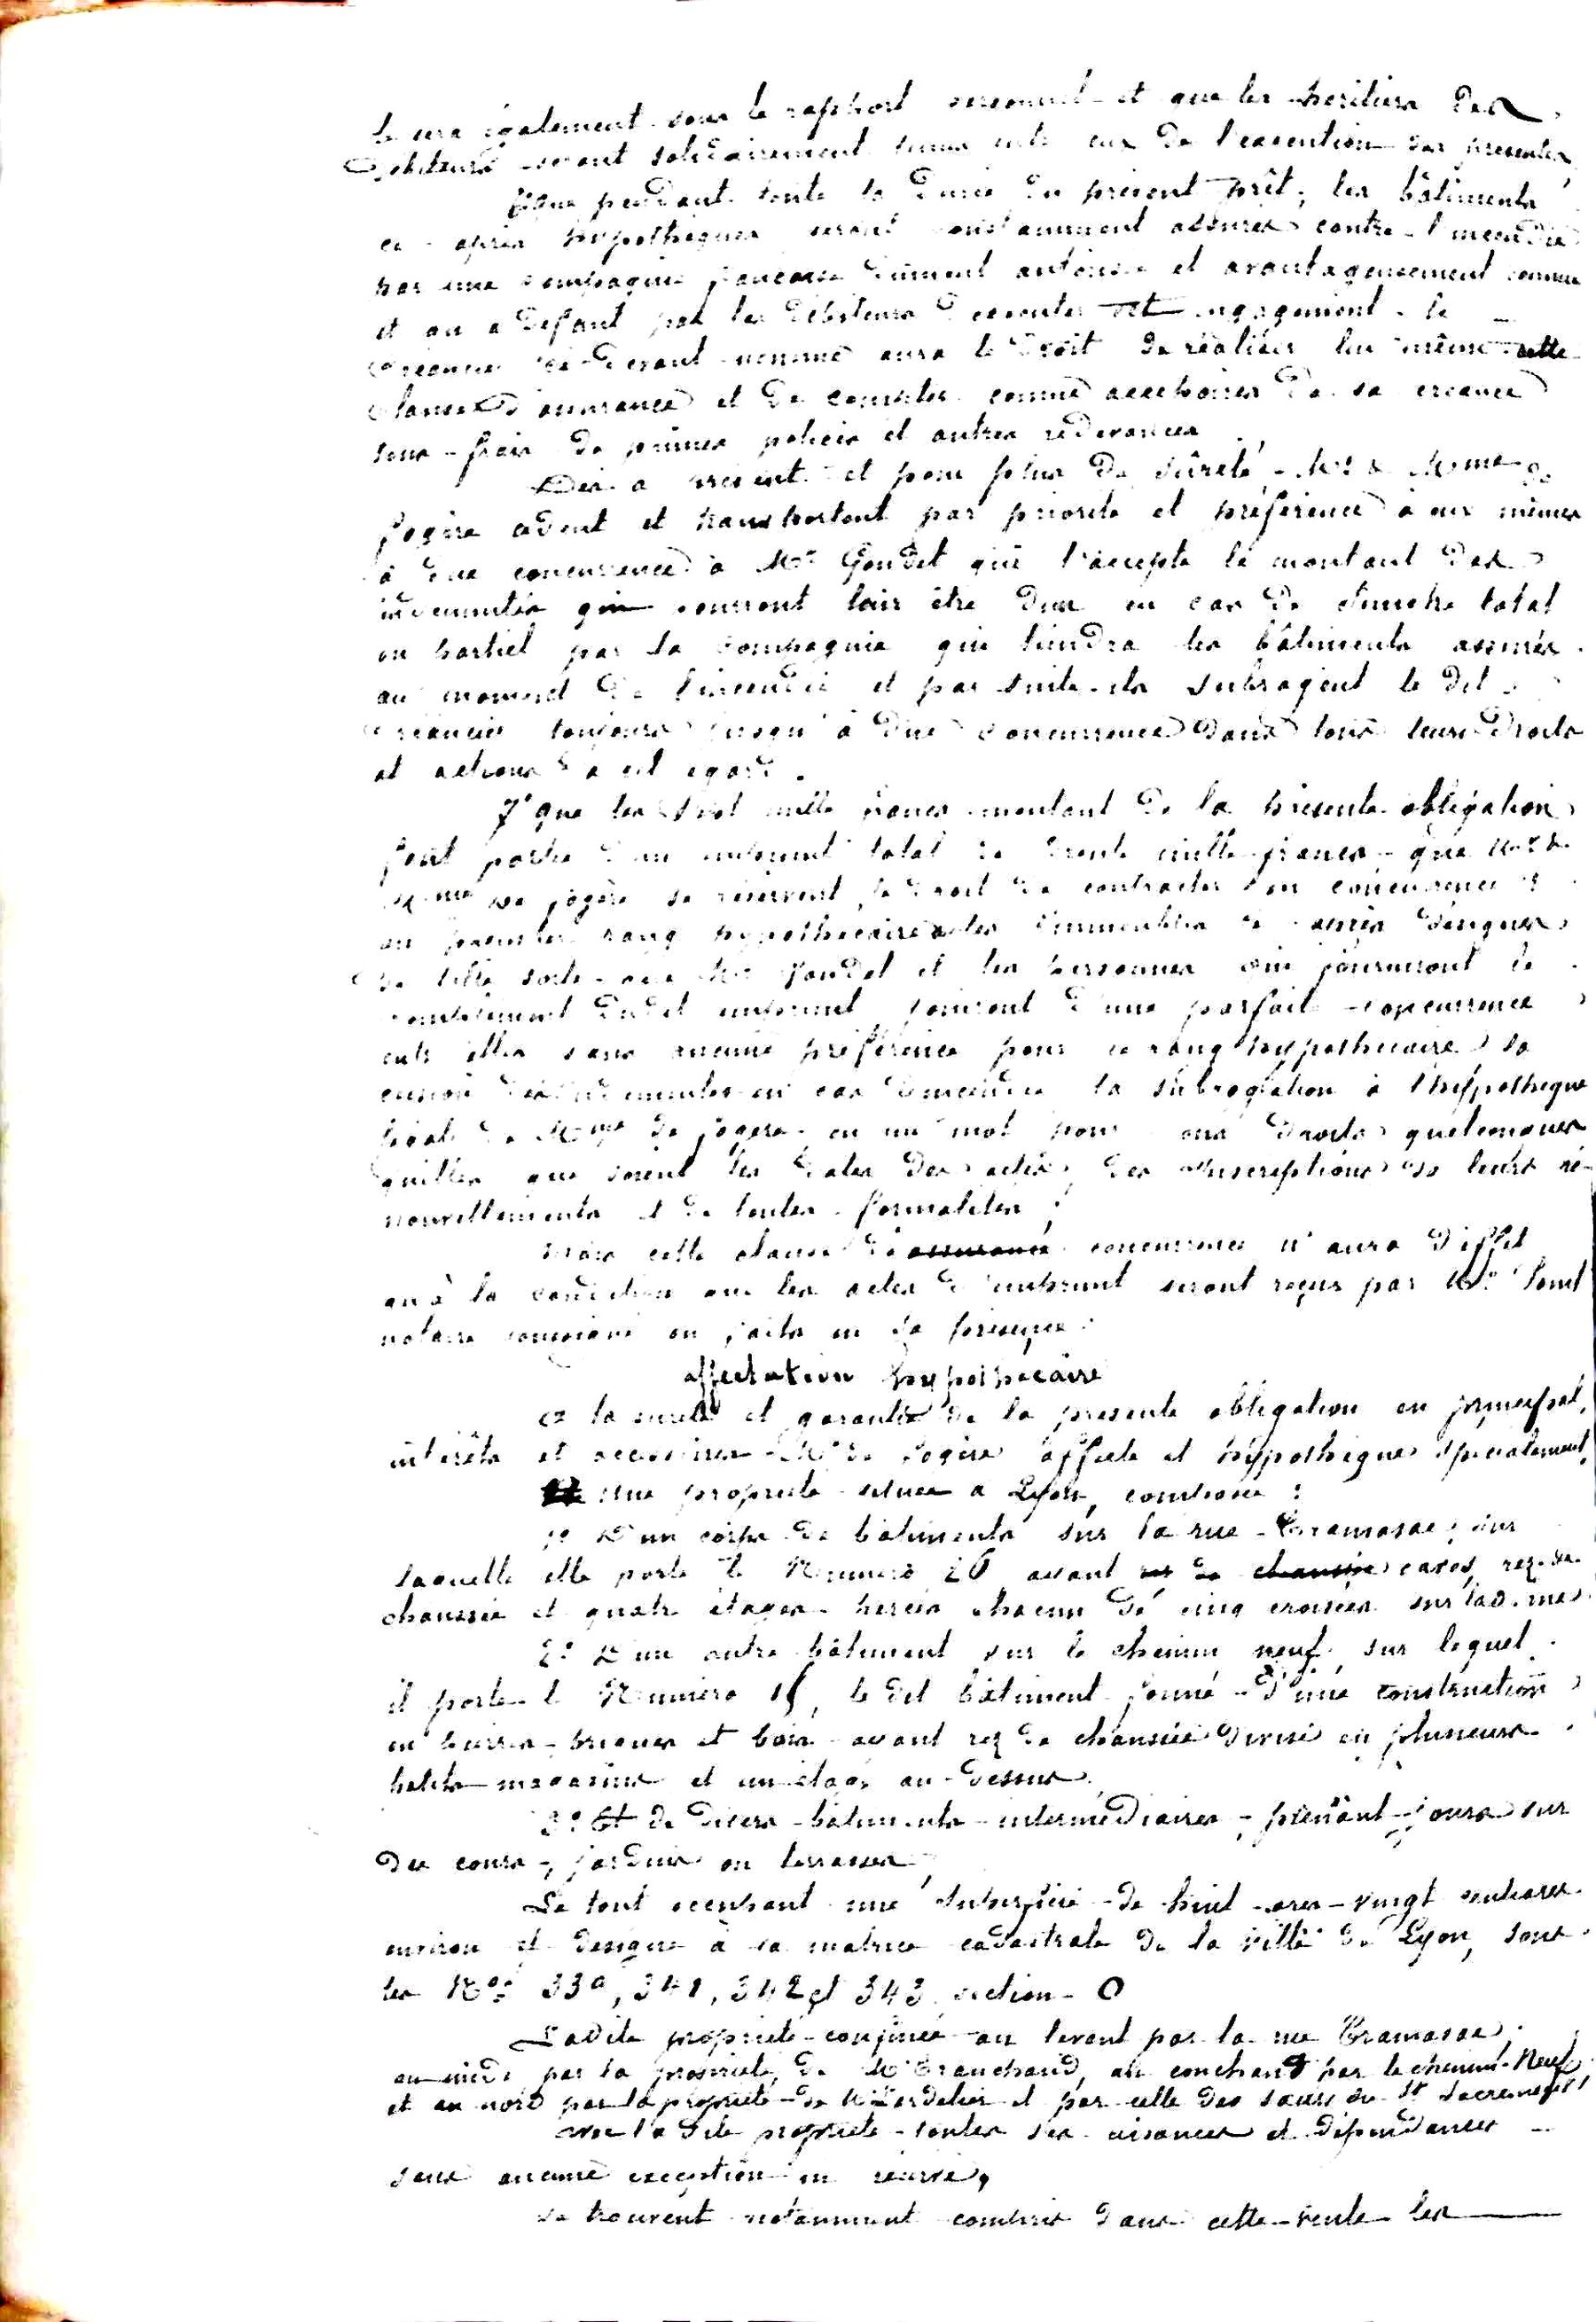 le sera également sous le rapport personnel et que les héritiers des
débiteurs seront solidairement tenus entr eux de l'exécution des présentes
que pendant toute la durée du présent prêt, les bâtiments
ci-après hypothéqués seront constamment assurés contre l'incendie
par une compagnie française dûment autorisée et avantageusement connue
et au a défaut par les débiteurs d'exécuter cet engagement le
créancier ci-devant nommé aura le droit de réaliser lui même cette
clause d'assurance et de compter comme accessoires de sa créance
tous frais de primes polices et autres redevances
Dès à présent et pour plus de sûreté Mr & Mme de
Jogère cèdent et transportent par priorité et préférence à eux mêmes
à due concurrence à Mr Goudet qui l'accepte le montant des
indemnités qui pourront leur être dues en cas de sinistre total
ou partiel par la compagnie qui tiendra les bâtiments assurés
au moment de l'incendie et par suite ils subrogent le dit
créancier toujours jusqu'à due concurrence dans tous leurs droits
et actions à cet égard.
7° que les sept mille francs montant de la présente obligation
font partie d'un emprunt total de trente mille francs que Mr &
Mme de Jogère se réservent le droit de contracter en concurrence
au premier rang hypothécaire les immeubles ci après désignés
de telle sorte que Mr Goudet et les personnes qui fourniront le
complément dudit emprunt jouiront d'une parfaite concurrence
entr elles sans aucune préférence pour ce rang hypothécaire la
cession des indemnités en cas d'incendie la subrogation à l'hypothèque
légale de Mme de Jogère en un mot pour ous droits quelconques
quelles que soient les dates des actes, des inscriptions de leurs re-
nouvellements et de toutes formalités
Mais cette clause de assurance concurrence n'aura d'effet
qu'à la condition que les actes d'emprunt seront reçus par Me
notaire soussigné ou faits en sa présence.
affectation hypothécaire
a la sureté et garantie de la présente obligation en principal,
intérêts et accessoires Mr de Jogère affecte et hypothèque spécialement,
une propriété située à Lyon, composée :
1° D'un corps de bâtiments sur la rue Tramassac, sur
laquelle elle porte le Numéro 26 ayant rez de chaussée caves, rez-de-
chaussée et quatre étages percés chacun de cinq croisées sur lad. rue
2° D'un autre bâtiment sur le chemin neuf, sur lequel
il porte le Numéro 15, le dit bâtiment formé d'une construction
en pierres briques et bois ayant rez de chaussée divisé en plusieurs
petits magasins et un étage au-dessus.
3° Et de divers bâtiments intermédiaires, prenant jours sur
des cours, jardins ou terrasses
Le tout occupant une superficie de huit ares vingt centiares
environ et désigné à la matrice cadastrale de la ville de Lyon, sous
les Nos 33a, 341, 342 et 343 section O
Ladite propriété confinée au levant par la rue Tramassac,
au midi par la propriété de Mr Tranchand, au couchant par le chemin Neuf
et au nord par la propriété de Mr Cordelier et par celle des sœurs du St Sacrement
avec la dite propriété toutes ses aisances et dépendances
sans aucune exception ni réserve,
se trouvent notamment compris dans cette vente les